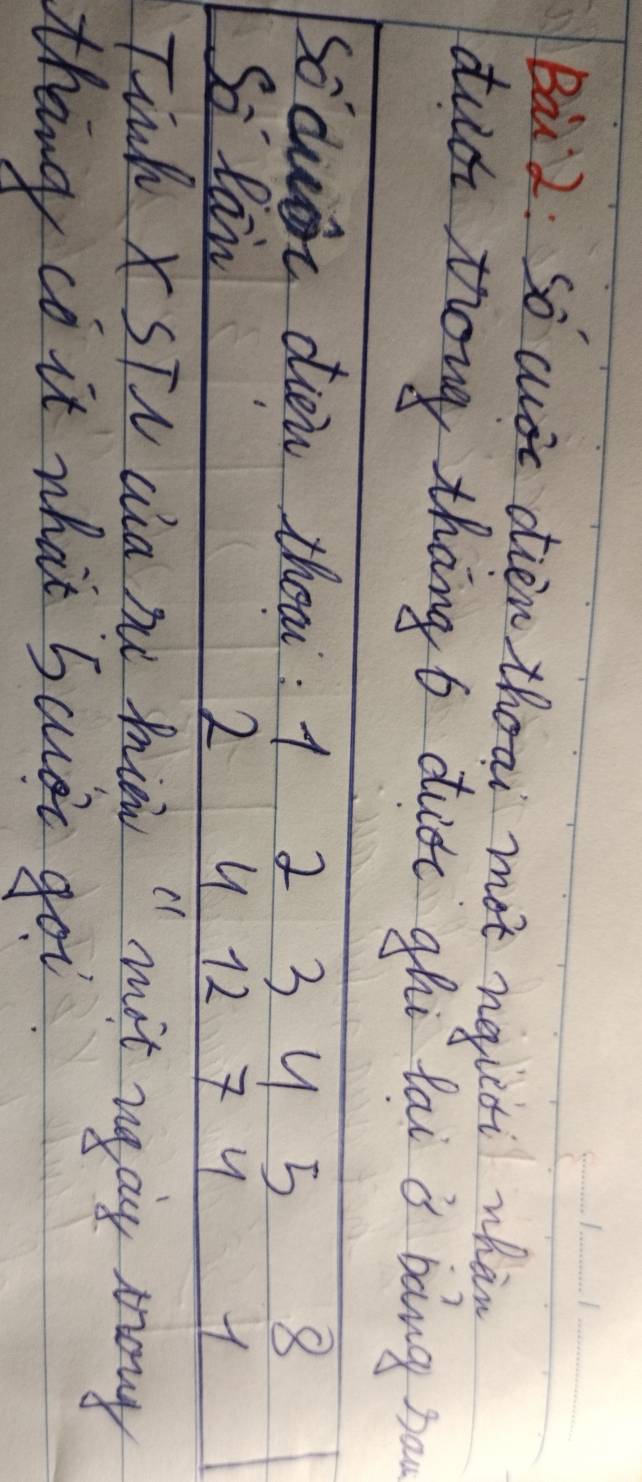 Bài 2: Số cuộc điện thoại một người nhận
được trong tháng 6 được ghi lại ở bảng sau
Số cuộc điện thoại: 1 2 3 4 5 8
Số lần 2 4 12 7 4 1
Tính XSTN của sự kiện " một ngày trong
tháng có ít nhất 5 cuộc gọi.